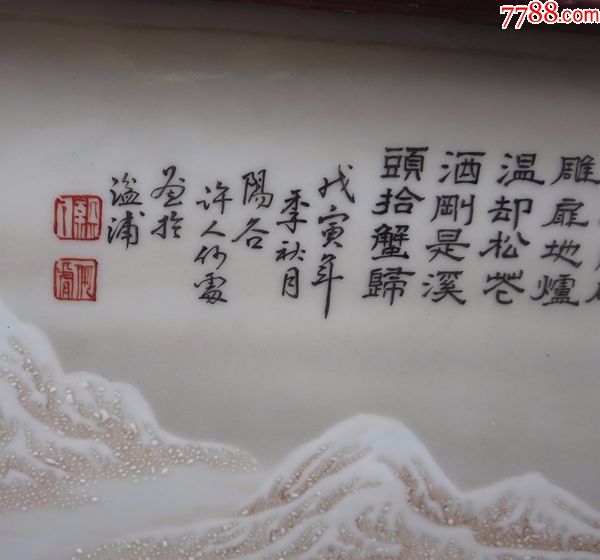 7788.com
雕扉地爐
温却松花
酒剛是溪
頭拾蟹歸
戊寅年
季秋月
陽谷
許人何處
於
湓浦